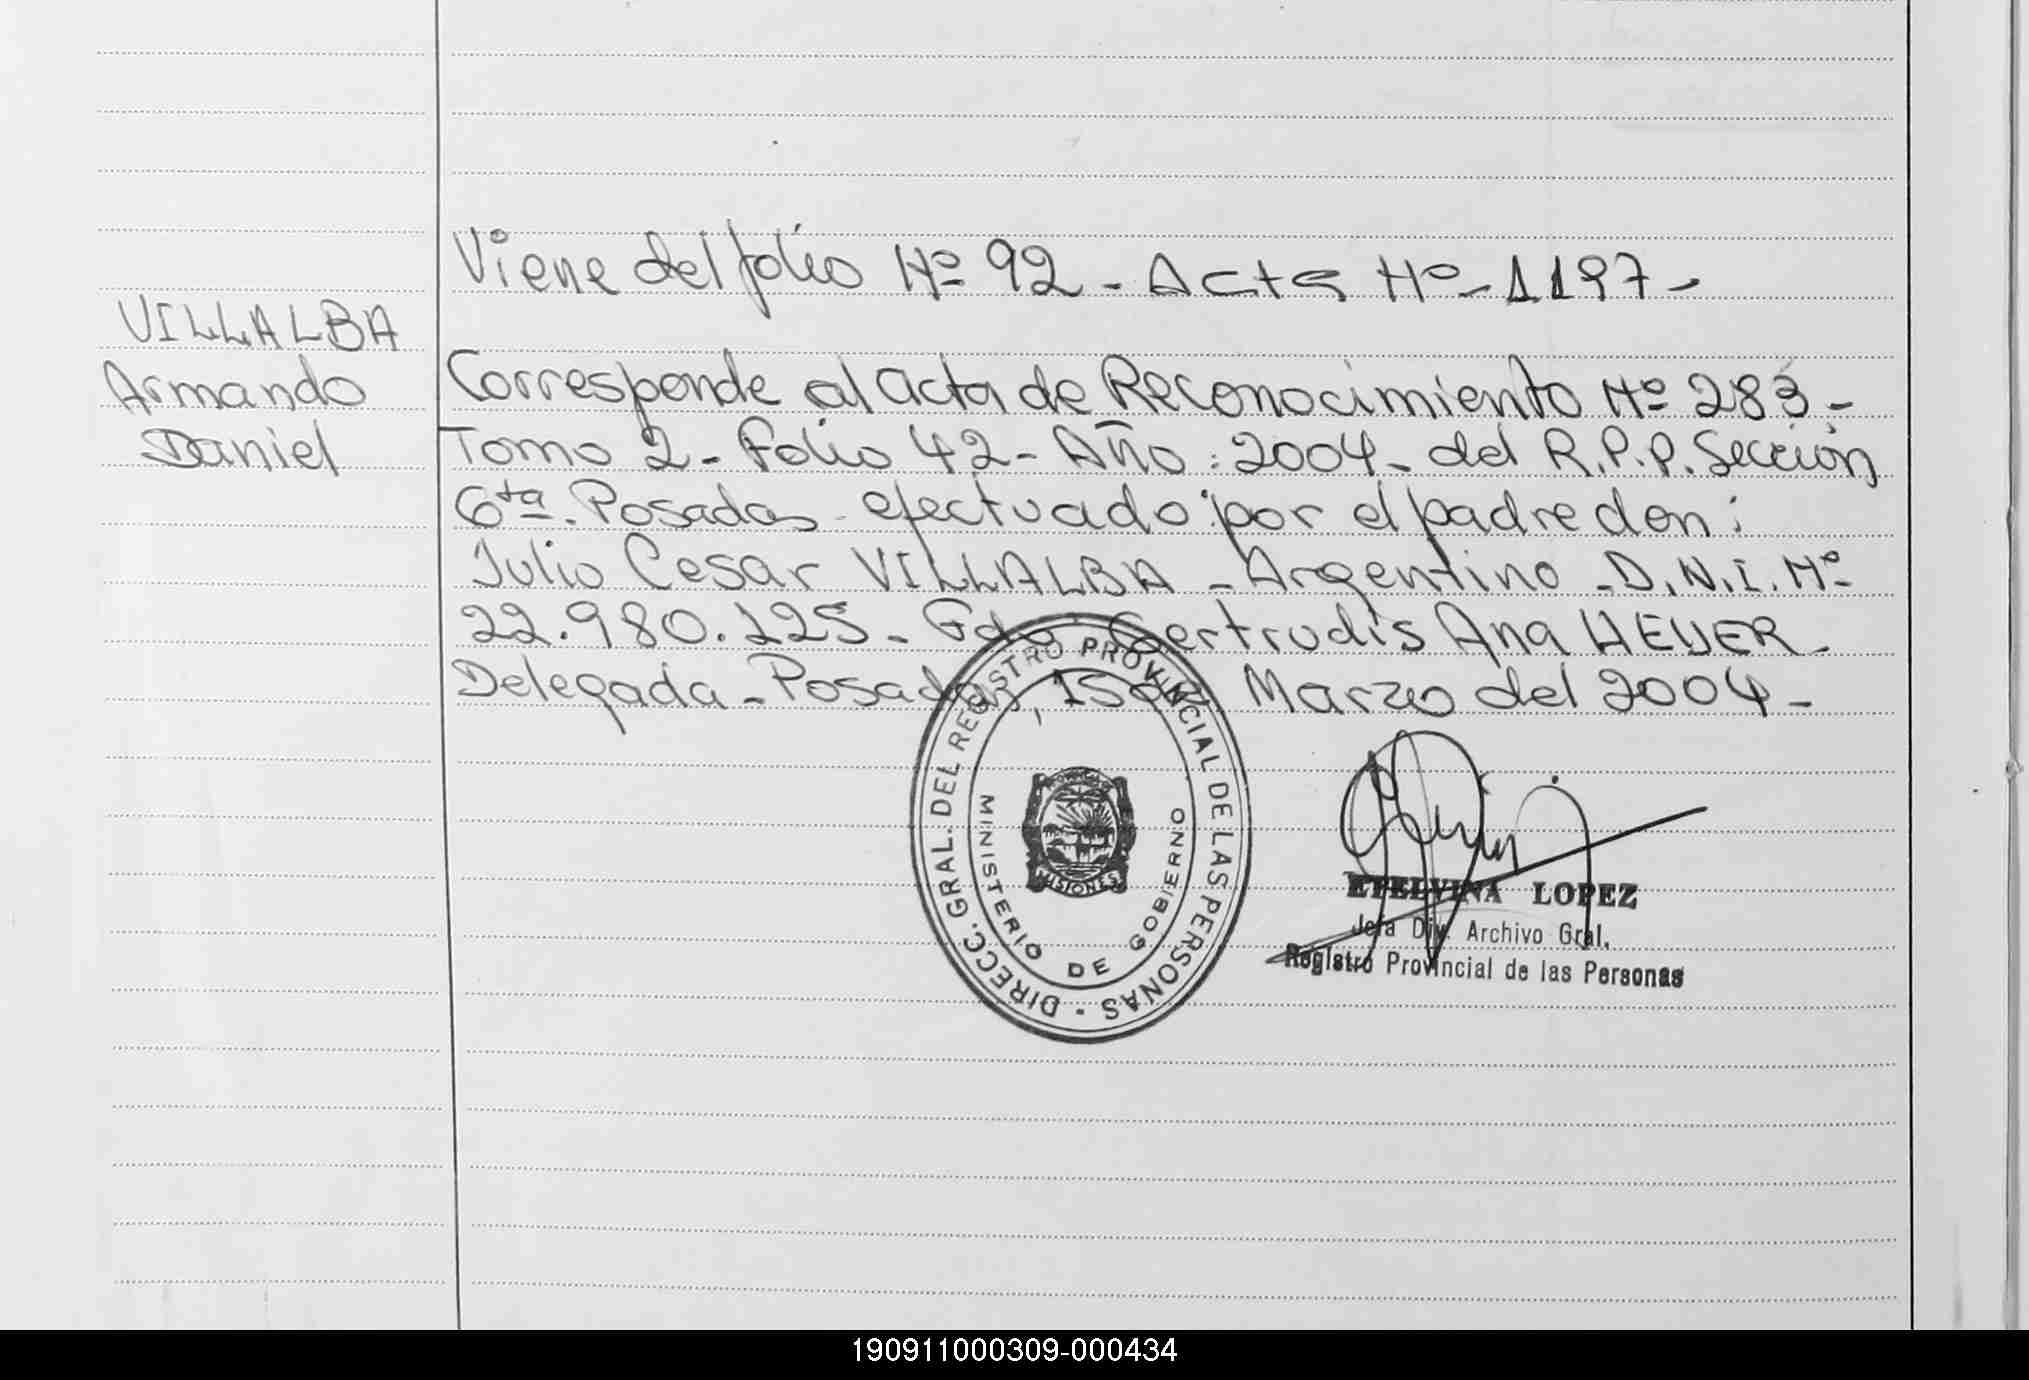 Viene del folio Nº 92 - Acta Nº - 1197 -
VILLALBA
Armando
Daniel
Corresponde al acta de Reconocimiento Nº 283 -
Tomo 2 - folio 42 - Año : 2004 - del R.P.P. Sección
6ta. Posadas - efectuado por el padre don :
Julio Cesar VILLALBA - Argentino - D.N.I. Nº
22.980.125 - Gertrudis Ana
Delegada - Posadas, 15 de Marzo del 2004 -
DIRECC. GRAL. DEL REGISTRO PROVINCIAL DE LAS PERSONAS -
MINISTERIO DE GOBIERNO
MISIONES
ETELVINA LOPEZ
Jefa Div. Archivo Gral.
Registro Provincial de las Personas
190911000309-000434